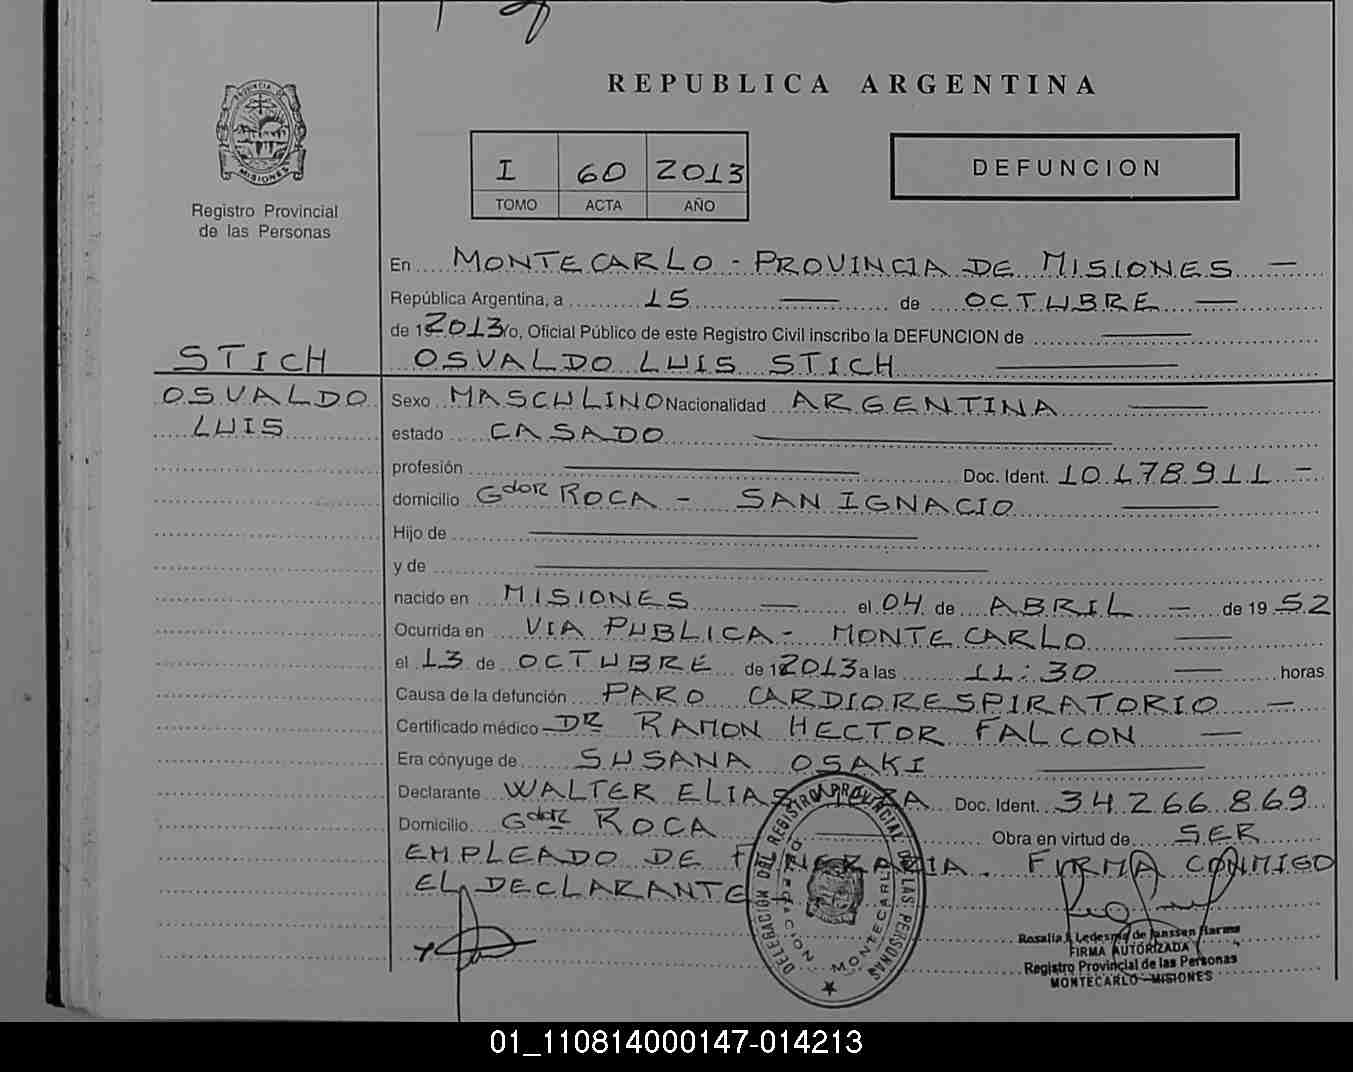 REPUBLICA ARGENTINA
PROVINCIA DE
MISIONES
Registro Provincial
de las Personas
I 60 2013
TOMO ACTA AÑO
DEFUNCION
En MONTECARLO - PROVINCIA DE MISIONES —
República Argentina, a 15 — de OCTUBRE —
de 1 2013 Yo, Oficial Público de este Registro Civil inscribo la DEFUNCION de —
STICH
OSVALDO LUIS STICH —
OSVALDO
LUIS
Sexo MASCULINO Nacionalidad ARGENTINA —
estado CASADO —
profesión — Doc. Ident. 10.178.911 -
domicilio Gdor ROCA - SAN IGNACIO —
Hijo de —
y de —
nacido en MISIONES — el 04 de ABRIL — de 19 52
Ocurrida en VIA PUBLICA - MONTECARLO —
el 13 de OCTUBRE de 1 2013 a las 11:30 — horas
Causa de la defunción PARO CARDIORESPIRATORIO —
Certificado médico DR RAMON HECTOR FALCON —
Era cónyuge de SUSANA OSAKI —
Declarante WALTER ELIAS Doc. Ident. 34.266.869
Domicilio Gdor ROCA — Obra en virtud de SER
EMPLEADO DE FUNERARIA. FIRMA CONMIGO
EL DECLARANTE
DELEGACIÓN DEL REGISTRO PROVINCIAL DE LAS PERSONAS
MONTECARLO
Rosalia Ledesma de Janssen Harms
FIRMA AUTORIZADA
Registro Provincial de las Personas
MONTECARLO - MISIONES
01_110814000147-014213